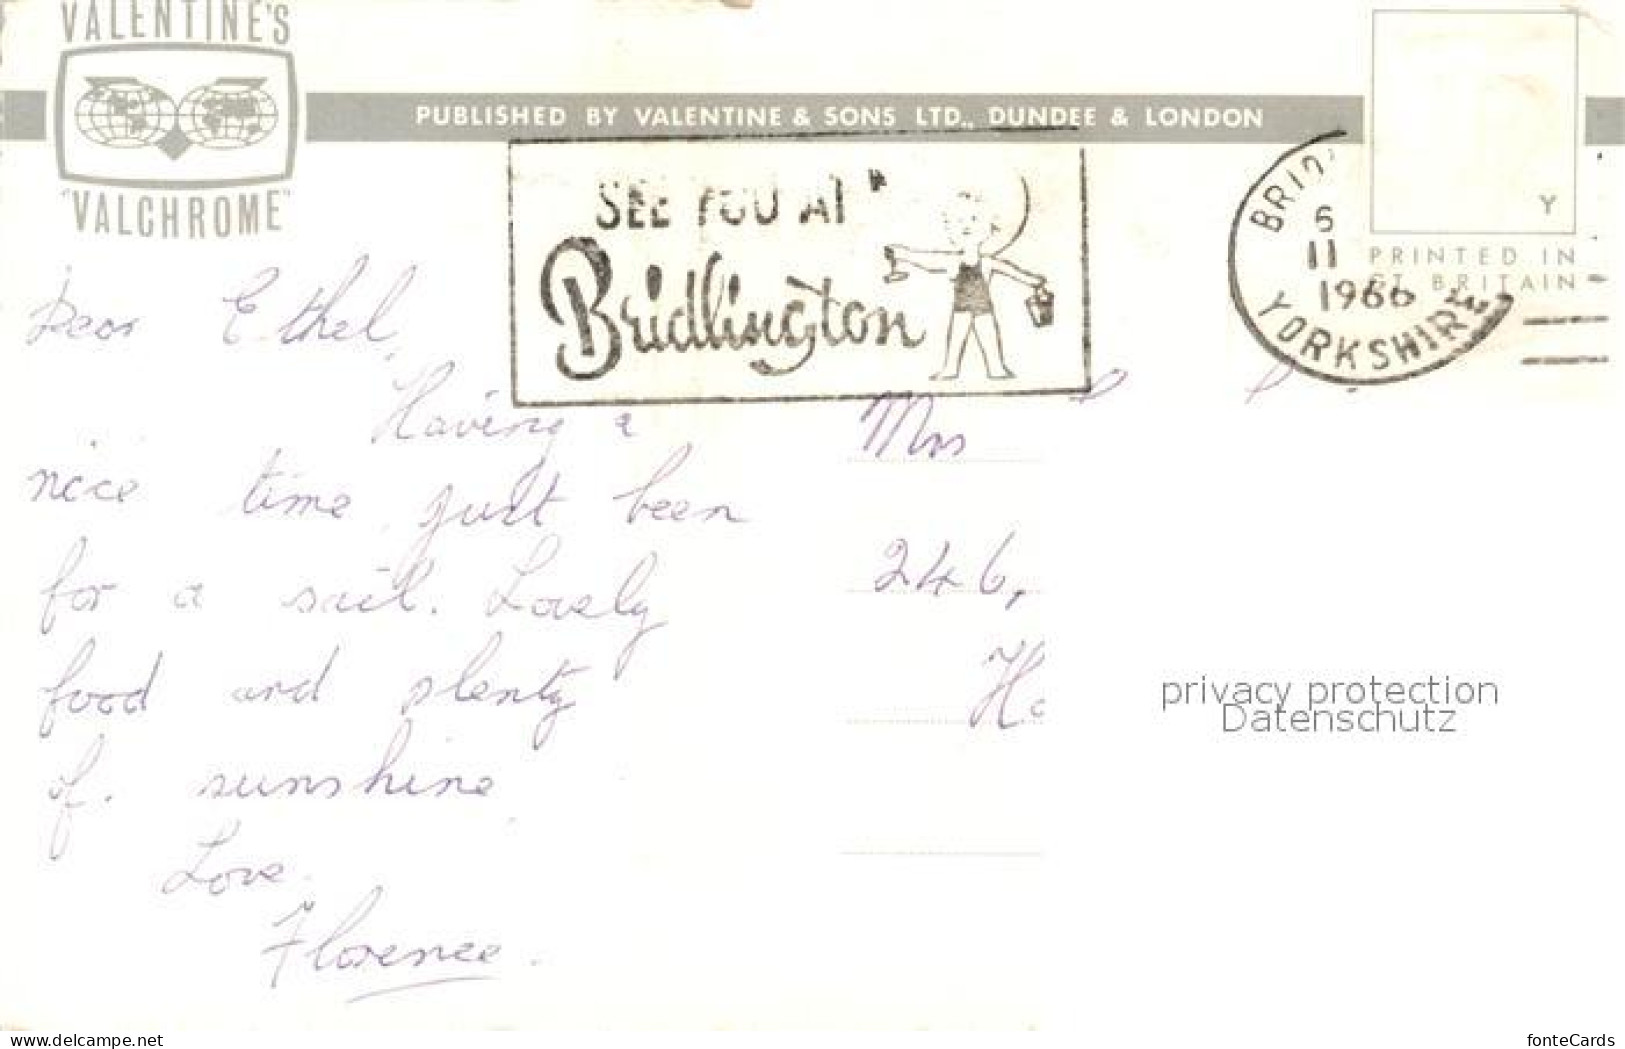 VALENTINE'S
"VALCHROME"
PUBLISHED BY VALENTINE & SONS LTD., DUNDEE & LONDON
SEE YOU AT
Bridlington
6
11
1966
YORKSHIRE
Y
PRINTED IN
GT. BRITAIN
Dear Ethel,
Having a
nice time just been
for a sail. Lovely
food and plenty
of sunshine
Love.
Florence.
Mrs
246,
privacy protection
Datenschutz
www.delcampe.net
fonteCards